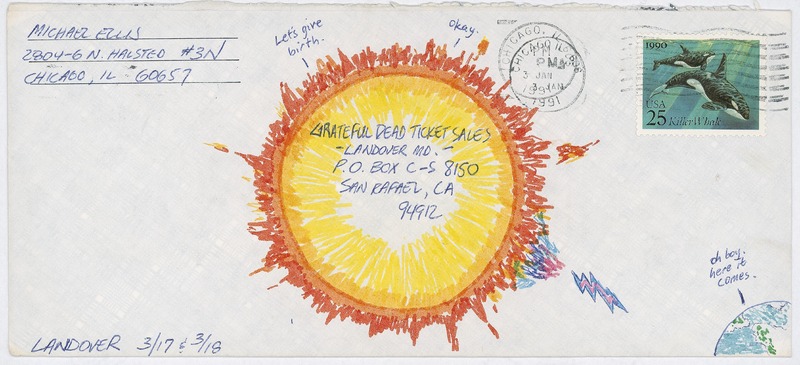 MICHAEL ELLIS
2804-6 N. HALSTED #3N
CHICAGO, IL - 60657
Let's give
birth.
okay.
CHICAGO, IL 606
CHICAGO IL
PM
3 JAN
1991
1991
1990
USA
25 Killer Whale
GRATEFUL DEAD TICKET SALES
- LANDOVER MD. -
P.O. BOX C-S 8150
SAN RAFAEL, CA
94912
oh boy.
here it
comes.
LANDOVER 3/17 & 3/18